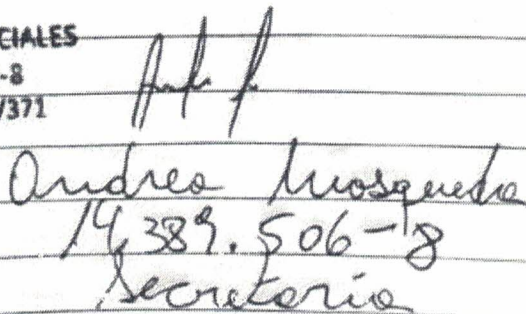 CIALES
-8
/371
Andrea Mosqueda
14.389.506-8
Secretaria